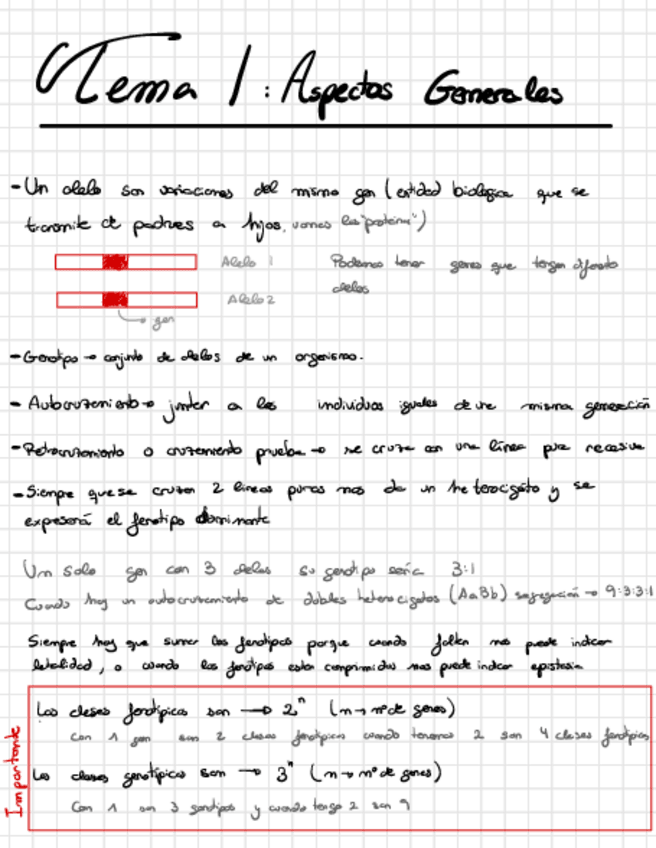 Tema 1: Aspectos Generales
- Un alelo son variaciones del mismo gen (entidad biologica que se
transmite de padres a hijos, vamos las "proteína")
Alelo 1
Podemos tener genes que tengan diferente
alelos
Alelo 2
gen
- Genotipo → conjunto de alelos de un organismo.
- Autocruzamiento → juntar a los individuos iguales de una misma generación
- Retrocruzamiento o cruzamiento prueba → se cruza con una línea pura recesiva
- Siempre que se cruzan 2 lineas puras nos da un heterocigoto y se
expresará el fenotipo dominante
Un solo gen con 3 alelos su genotipo sería 3:1
Cuando hay un autocruzamiento de dobles heterocigotos (AaBb) segregación → 9:3:3:1
Siempre hay que sumar los fenotipos porque cuando faltan nos puede indicar
letalidad, o cuando los fenotipos estan comprimidos nos puede indicar epistasia
Importante
Las clases fenotípicas son → 2ⁿ (n → nº de genes)
Con 1 gen son 2 clases fenotípicas cuando tenemos 2 son 4 clases fenotípicas
Las clases genotípicas son → 3ⁿ (n → nº de genes)
Con 1 son 3 genotipos y cuando tengo 2 son 9